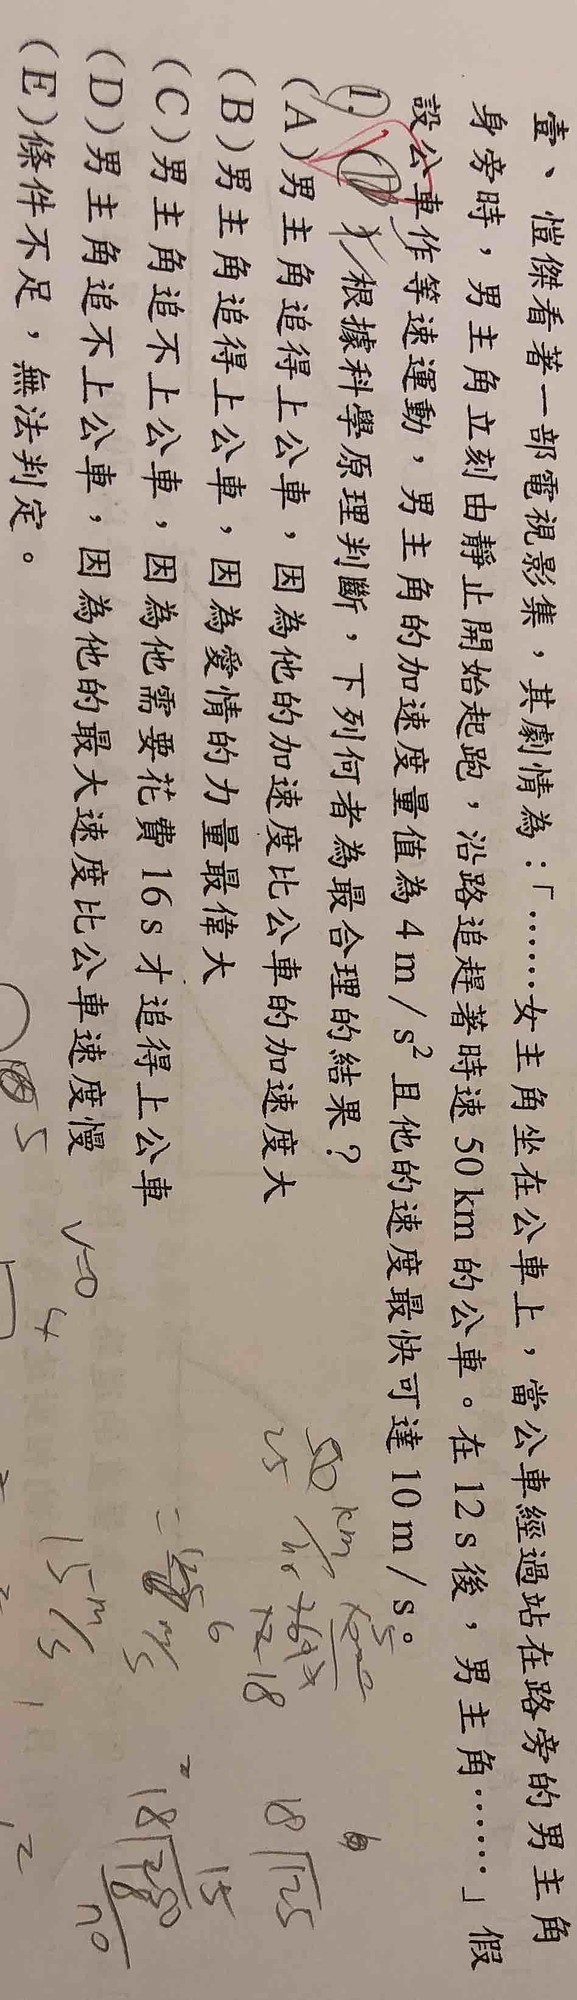 壹、愷傑看著一部電視影集，其劇情為：「……女主角坐在公車上，當公車經過站在路旁的男主角
身旁時，男主角立刻由靜止開始起跑，沿路追趕著時速50 km的公車。在12 s後，男主角……」假
設公車作等速運動，男主角的加速度量值為4 m / s²且他的速度最快可達10 m / s。
1. 根據科學原理判斷，下列何者為最合理的結果？
(A)男主角追得上公車，因為他的加速度比公車的加速度大
(B)男主角追得上公車，因為愛情的力量最偉大
(C)男主角追不上公車，因為他需要花費16 s才追得上公車
(D)男主角追不上公車，因為他的最大速度比公車速度慢
(E)條件不足，無法判定。
50 km/hr
25
18
6
18√125
15
18√250
= m/s
15 m/s
V=0
4
5